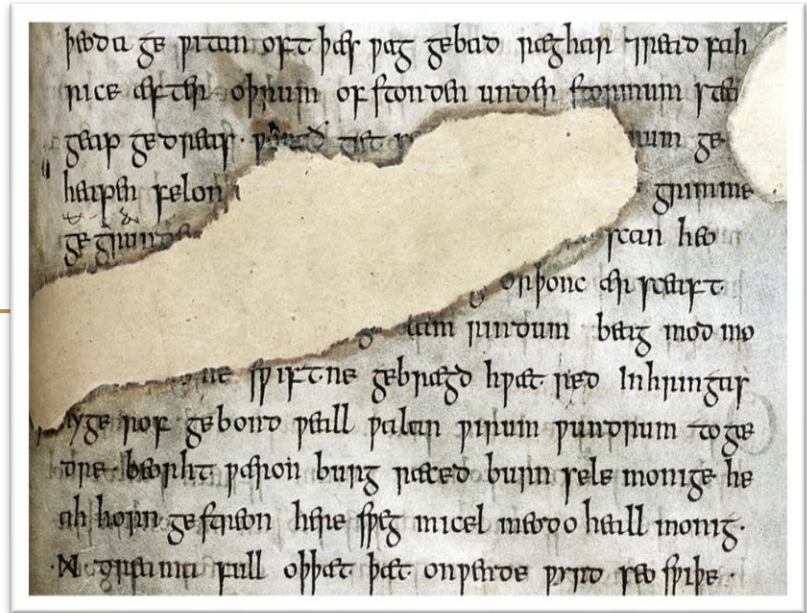 þeoda ge ƿitan oft þæs ƿag gebad ræghar ⁊readfah
rice æfter oþrum ofstonden under stormum stea
geap gedreas · ƿunað giet se num ge
heaƿen felon grimme
ge grunde scan heo
g orþonc ær sceaft
g lam rindum beag mod mo
ne sƿiftne gebrægd hƿæt red Inhringas
yge rof gebond ƿeall ƿalan ƿirum ƿundrum toge
dre · beorht ƿæron burg ræced burn sele monige he
ah horn gestreon here sƿeg micel meodo heall monig ·
·ᛗ· dreama full oþþæt þæt onƿende ƿyrd seo sƿiþe ·